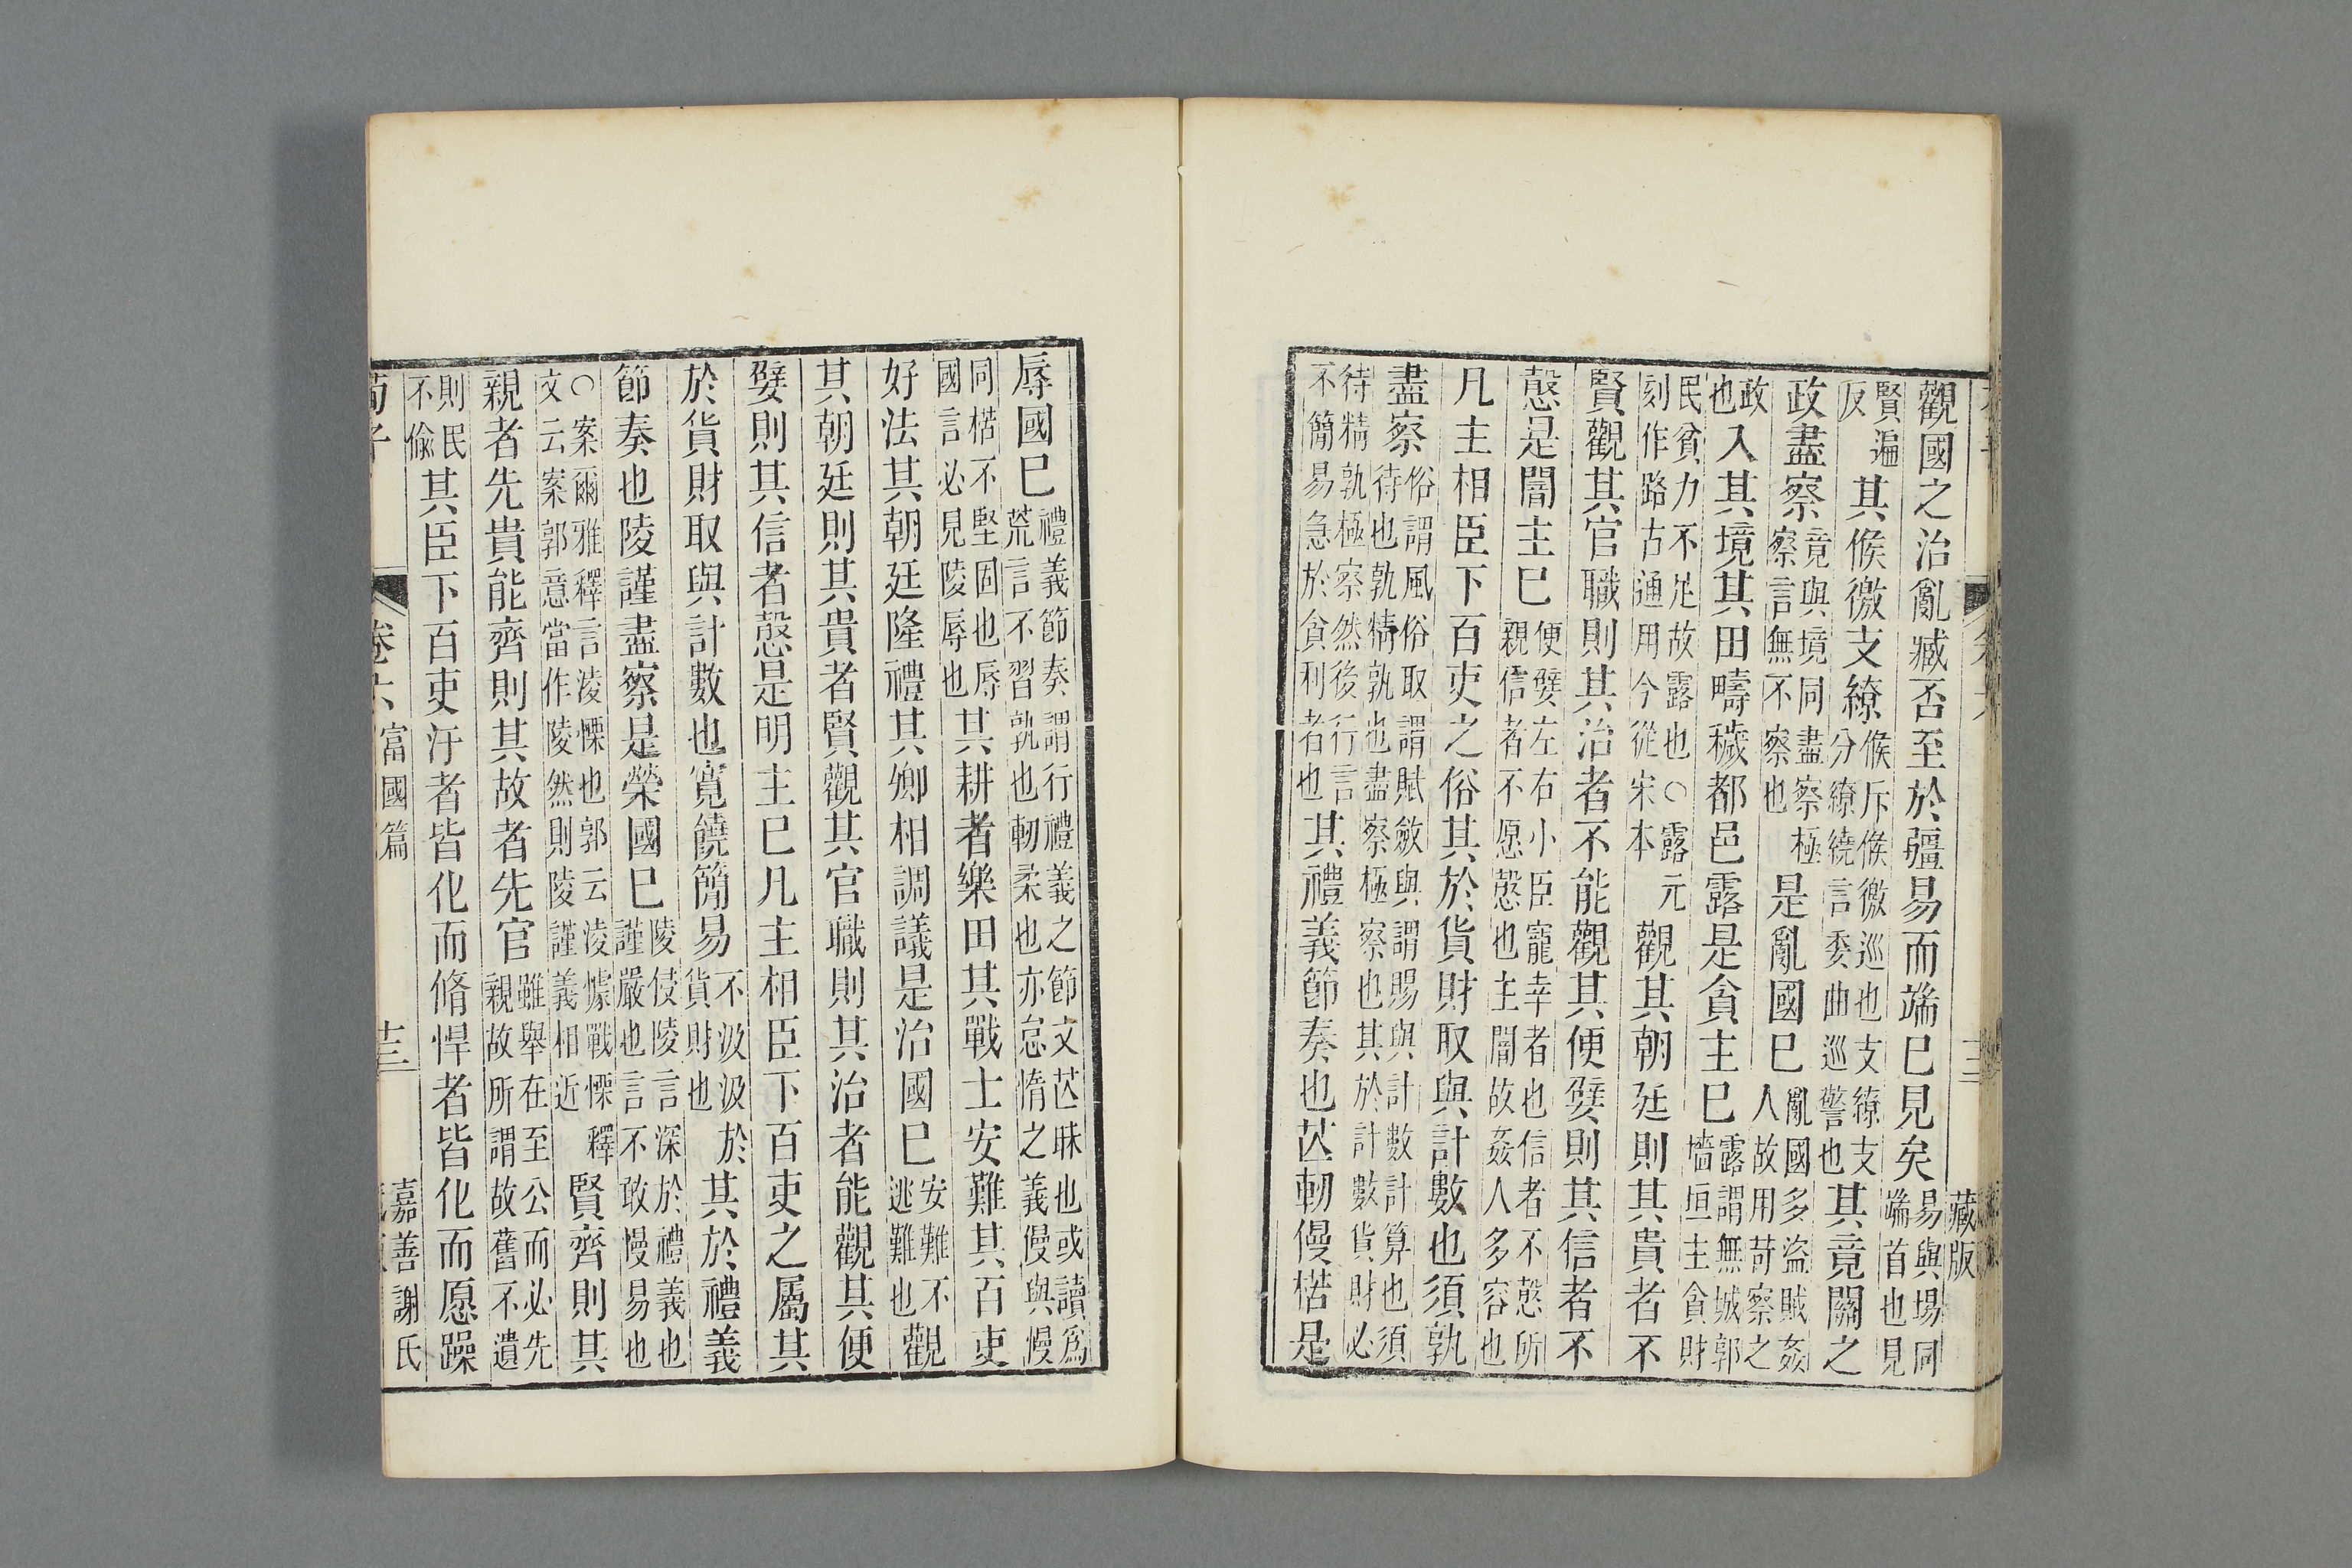 藏版
觀國之治亂臧否至於疆易而端已見矣易與場同端首也見
賢遍反其候徼支繚候斥候徼巡也支繚支分繚繞言委曲巡警也其竟關之
政盡察竟與境同盡察極察言無不察也是亂國已亂國多盜賊姦人故用苛察之
政也入其境其田疇穢都邑露是貪主已露謂無城郭墻垣主貪財
民貧力不足故露也○露元刻作路古通用今從宋本觀其朝廷則其貴者不
賢觀其官職則其治者不能觀其便嬖則其信者不
愨是闇主已便嬖左右小臣寵幸者也信者不愨所親信者不愿愨也主闇故姦人多容也
凡主相臣下百吏之俗其於貨財取與計數也須孰
盡察俗謂風俗取謂賦斂與謂賜與計數計算也須待也孰精孰也盡察極察也其於計數貨財必
待精孰極察然後行言不簡易急於貪利者也其禮義節奏也芒軔僈楛是
辱國已禮義節奏謂行禮義之節文芒昧也或讀爲荒言不習孰也軔柔也亦怠惰之義僈與慢
同楛不堅固也辱國言必見陵辱也其耕者樂田其戰士安難其百吏
好法其朝廷隆禮其卿相調議是治國已安難不逃難也觀
其朝廷則其貴者賢觀其官職則其治者能觀其便
嬖則其信者愨是明主已凡主相臣下百吏之屬其
於貨財取與計數也寬饒簡易不汲汲於貨財也其於禮義
節奏也陵謹盡察是榮國已陵侵陵言深於禮義也謹嚴也言不敢慢易也
○案爾雅釋言淩慄也郭云淩懅戰慄釋文云案郭意當作陵然則陵謹義相近賢齊則其
親者先貴能齊則其故者先官雖舉在至公而必先親故所謂故舊不遺
則民不偷其臣下百吏汙者皆化而脩悍者皆化而愿躁
荀子 卷六 富國篇 十三 嘉善謝氏